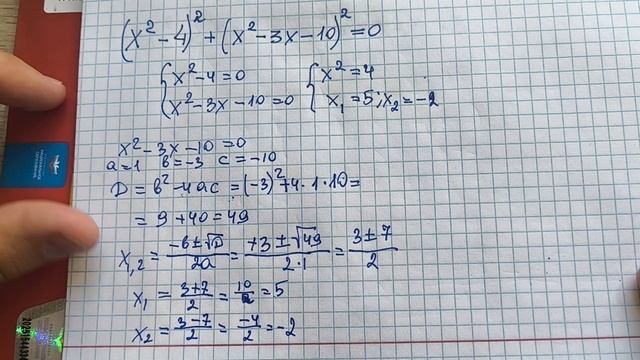 (x²-4)² + (x²-3x-10)² = 0
{ x²-4=0 { x²=4
x²-3x-10=0 x₁=5; x₂=-2
x²-3x-10=0
a=1 b=-3 c=-10
D = b²-4ac = (-3)²+4·1·10=
= 9+40=49
x₁,₂ = (-b±√D)/2a = (+3±√49)/(2·1) = (3±7)/2
x₁ = (3+7)/2 = 10/2 = 5
x₂ = (3-7)/2 = -4/2 = -2